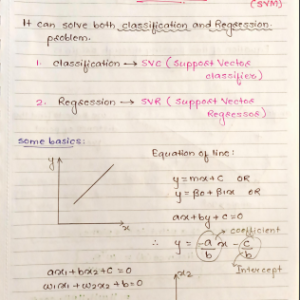 (SVM)
It can solve both classification and Regression
problem.
1. classification → SVC (Support Vector
classifier)
2. Regression → SVR (Support Vector
Regressor)
some basics:
Equation of line:
y
x
y = mx + c OR
y = β0 + β1x OR
ax + by + c = 0
coefficient
∴ y = -a/b x - c/b
Intercept
ax1 + bx2 + c = 0
w1x1 + w2x2 + b = 0
x2